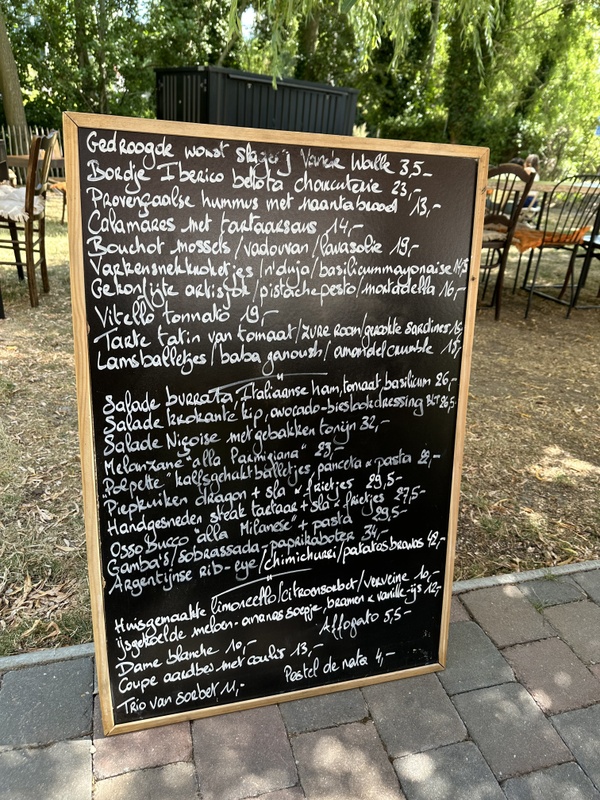 Gedroogde worst slagerij Vande Walle 3,5-
Bordje Iberico belota charcuterie 23,-
Provençaalse hummus met naantabrood 13,-
Calamares met tartaarsaus 14,-
Bouchot mossels/vadouvan/lavasolie 19,-
Varkensnekkroketjes/n'duja/basilicummayonaise
Gekonfijte artisjok/pistachepesto/mortadella 16,-
Vitello tonnato 19,-
Tarte tatin van tomaat/zure room/gerookte sardines
Lamsballetjes/baba ganoush/amandelcrumble 15,-
Salade burrata, Italiaanse ham, tomaat, basilicum 26,-
Salade krokante kip, avocado-bieslookdressing 26,5-
Salade Niçoise met gebakken tonijn 32,-
Melanzane "alla Parmigiana" 23,-
"Polpette" kalfsgehaktballetjes, panceta & pasta 22,-
Piepkuiken dragon + sla & frietjes 29,5-
Handgesneden steak tartaar + sla & frietjes 27,5-
Osso Bucco "alla Milanese" + pasta 29,5-
Gamba's/sobrassada-paprikaboter 34,-
Argentijnse rib-eye/chimichurri/patatas bravas 42,-
Huisgemaakte limoncello/citroensorbet/verveine 10,-
ijsgekoelde melon-ananas soepje, bramen & vanille-ijs 12,-
Affogato 5,5-
Dame blanche 10,-
Coupe aardbei met coulis 13,-
Pastel de nata 4,-
Trio van sorbet 11,-